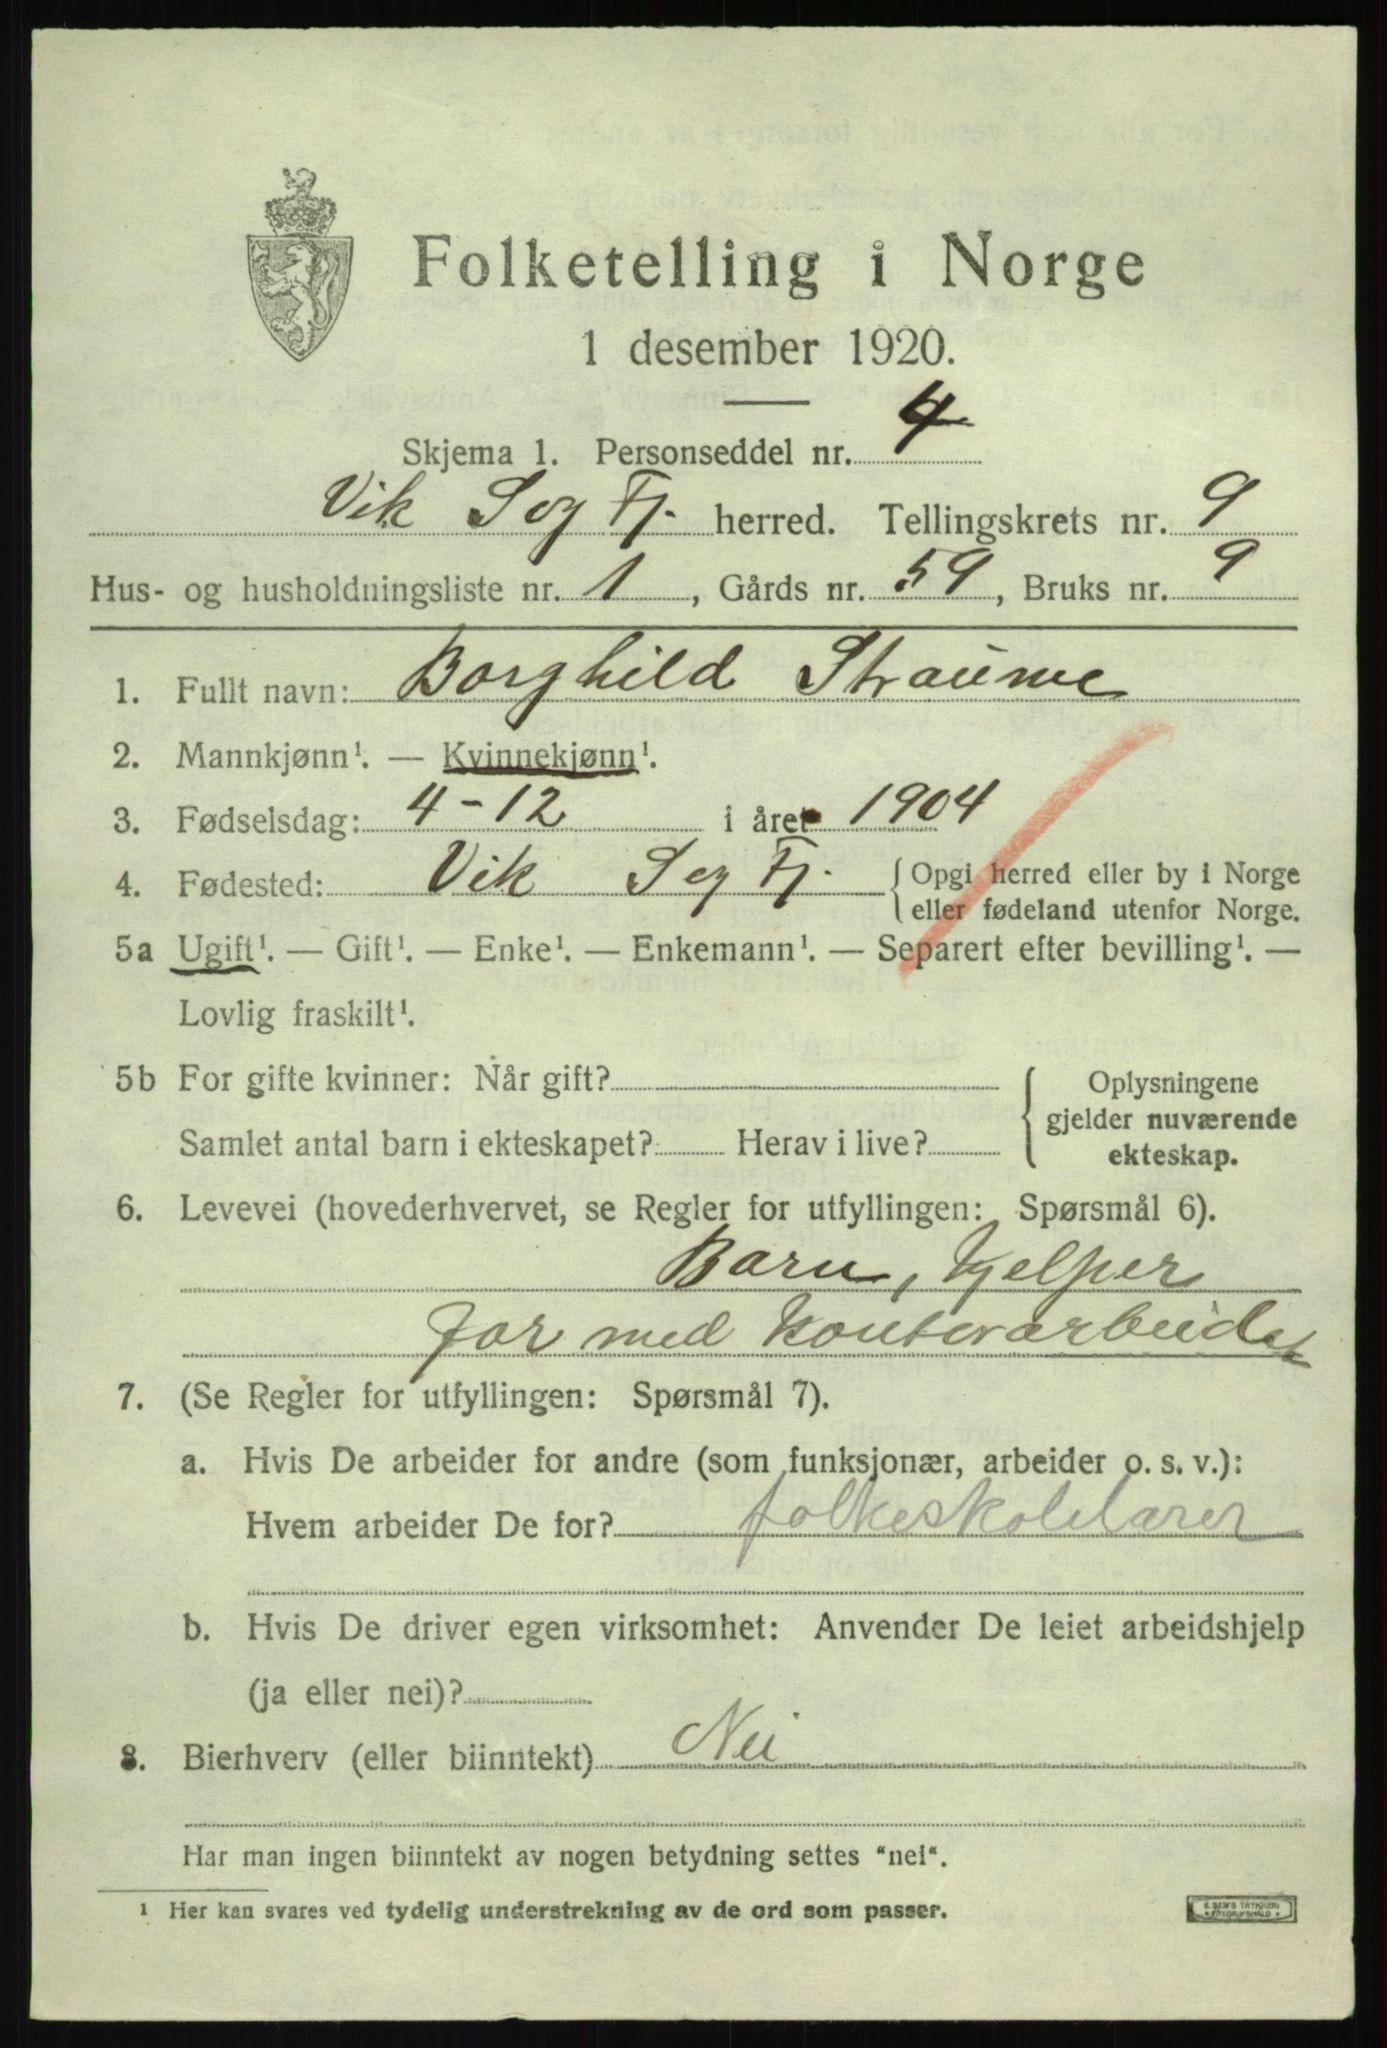 Folketelling i Norge
1 desember 1920.
Skjema 1. Personseddel nr. 4
Vik Sog Fj. herred. Tellingskrets nr. 9
Hus- og husholdningsliste nr. 1, Gårds nr. 59, Bruks nr. 9
1. Fullt navn: Borghild Straume
2. Mannkjønn¹. — Kvinnekjønn¹.
3. Fødselsdag: 4-12 i året 1904
4. Fødested: Vik Sog Fj. { Opgi herred eller by i Norge
eller fødeland utenfor Norge.
5a Ugift¹. — Gift¹. — Enke¹. — Enkemann¹. — Separert efter bevilling¹. —
Lovlig fraskilt¹.
5b For gifte kvinner: Når gift?
Samlet antal barn i ekteskapet? Herav i live?
{ Oplysningene
gjelder nuværende
ekteskap.
6. Levevei (hovederhvervet, se Regler for utfyllingen: Spørsmål 6).
Barn, hjelper
far med kontorarbeide
7. (Se Regler for utfyllingen: Spørsmål 7).
a. Hvis De arbeider for andre (som funksjonær, arbeider o. s. v.):
Hvem arbeider De for? folkeskolelærer
b. Hvis De driver egen virksomhet: Anvender De leiet arbeidshjelp
(ja eller nei)?
8. Bierhverv (eller biinntekt) Nei
Har man ingen biinntekt av nogen betydning settes "nei".
¹ Her kan svares ved tydelig understrekning av de ord som passer.